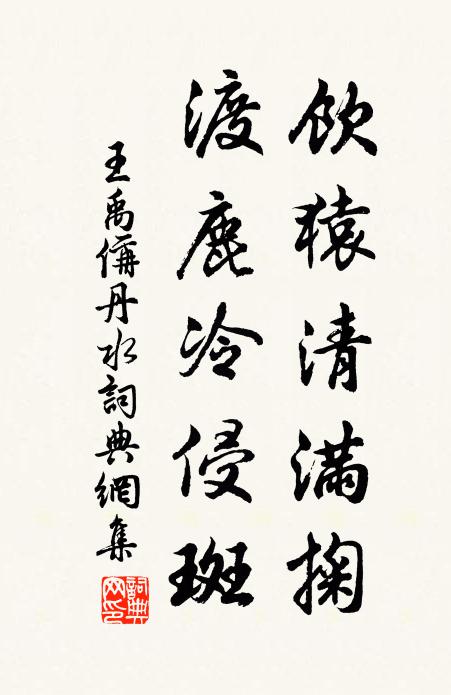 飲猿清滿掬
渡鹿冷侵斑
王禹偁丹水詞典網集
詞典網印